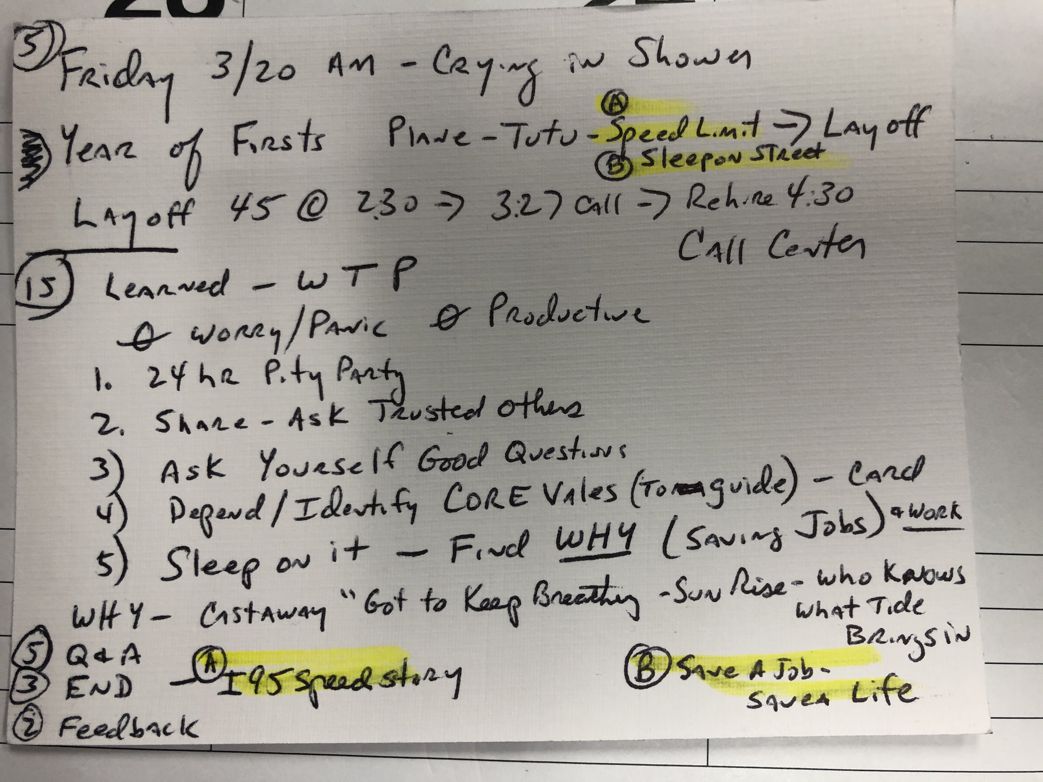 5) Friday 3/20 AM - Crying in Shower
Year of Firsts Plane - Tutu - A Speed Limit → Layoff
B Sleep on Street
Layoff 45 @ 2:30 → 3:27 call → Rehire 4:30
Call Center
15 Learned - WTP
Ø Worry/Panic Ø Productive
1. 24 hr Pity Party
2. Share - Ask Trusted others
3) Ask Yourself Good Questions
4) Depend/Identify CORE Vales (To guide) - Card
5) Sleep on it - Find WHY (Saving Jobs) & work
WHY - Castaway "Got to Keep Breathing - Sun Rise - who knows
what Tide
Brings in
5 Q & A
3 END - A I95 Speed story B Save A Job -
Save A Life
2 Feedback